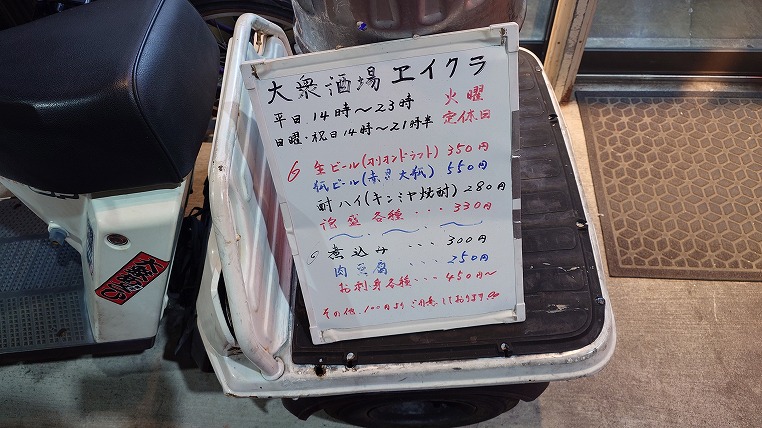 大衆酒場 エイクラ
平日 14時～23時
日曜・祝日14時～21時半
火曜
定休日
生ビール(オリオンドラフト) 350円
瓶ビール(赤星大瓶) 550円
酎ハイ(キンミヤ焼酎) 280円
泡盛各種・・・330円
煮込み ・・・300円
肉豆腐 ・・・250円
お刺身各種・・・450円～
その他、100円よりご用意しております。